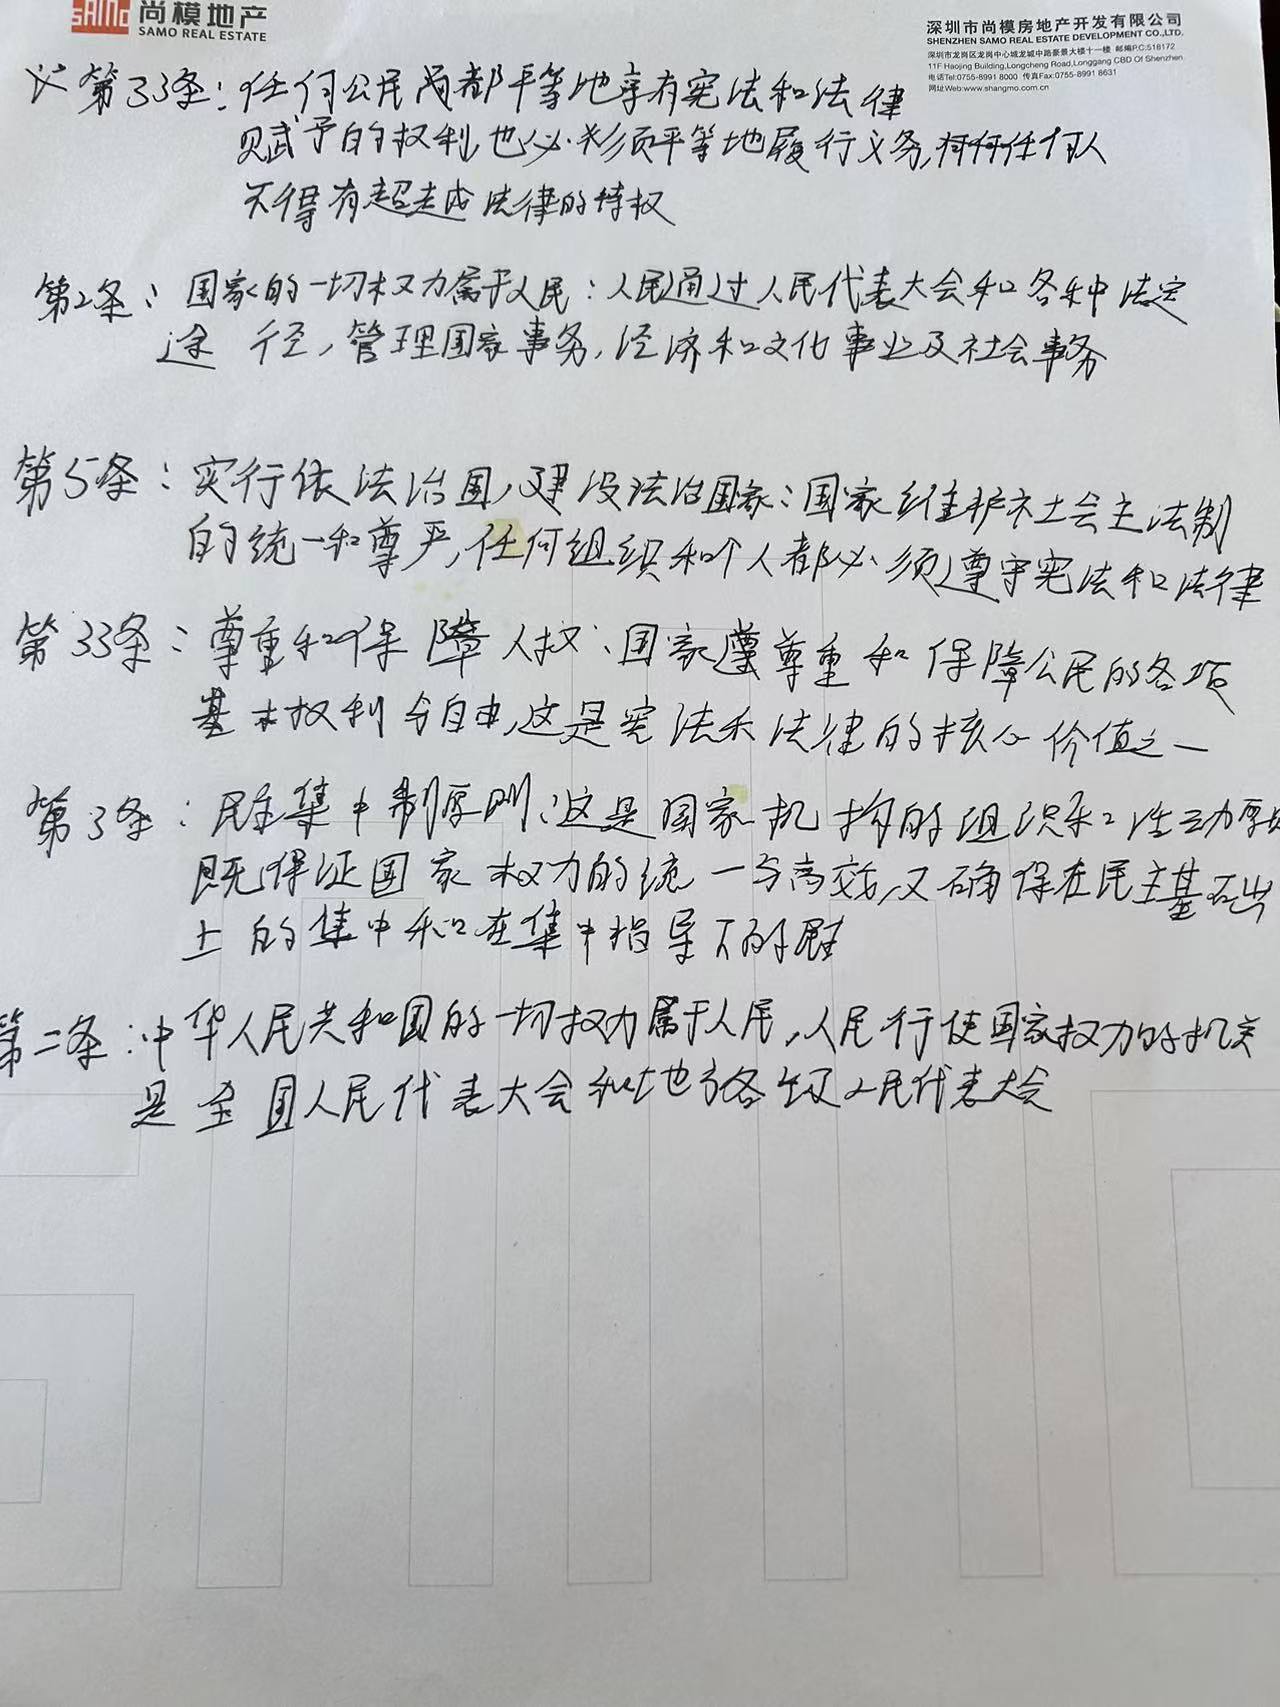 SAMO 尚模地产
SAMO REAL ESTATE
深圳市尚模房地产开发有限公司
SHENZHEN SAMO REAL ESTATE DEVELOPMENT CO.,LTD.
深圳市龙岗区龙岗中心城龙城中路豪景大楼十一楼 邮编P.C:518172
11F Haojing Building,Longcheng Road,Longgang CBD Of Shenzhen
电话Tel:0755-8991 8000 传真Fax:0755-8991 8631
网址Web:www.shangmo.com.cn
第33条：任何公民都平等地享有宪法和法律
赋予的权利,也必须平等地履行义务,任何人
不得有超越法律的特权
第2条：国家的一切权力属于人民：人民通过人民代表大会和各种法定
途径,管理国家事务,经济和文化事业及社会事务
第5条：实行依法治国,建设法治国家：国家维护社会主法制
的统一和尊严,任何组织和个人都必须遵守宪法和法律
第33条：尊重和保障人权、国家尊重和保障公民的各项
基本权利 自由,这是宪法和法律的核心价值之一
第3条：民主集中制原则：这是国家机构的组织和活动原则
既保证国家权力的统一与高效,又确保在民主基础
上的集中和在集中指导下的民主
第二条：中华人民共和国的一切权力属于人民,人民行使国家权力的机关
是全国人民代表大会和地方各级人民代表大会